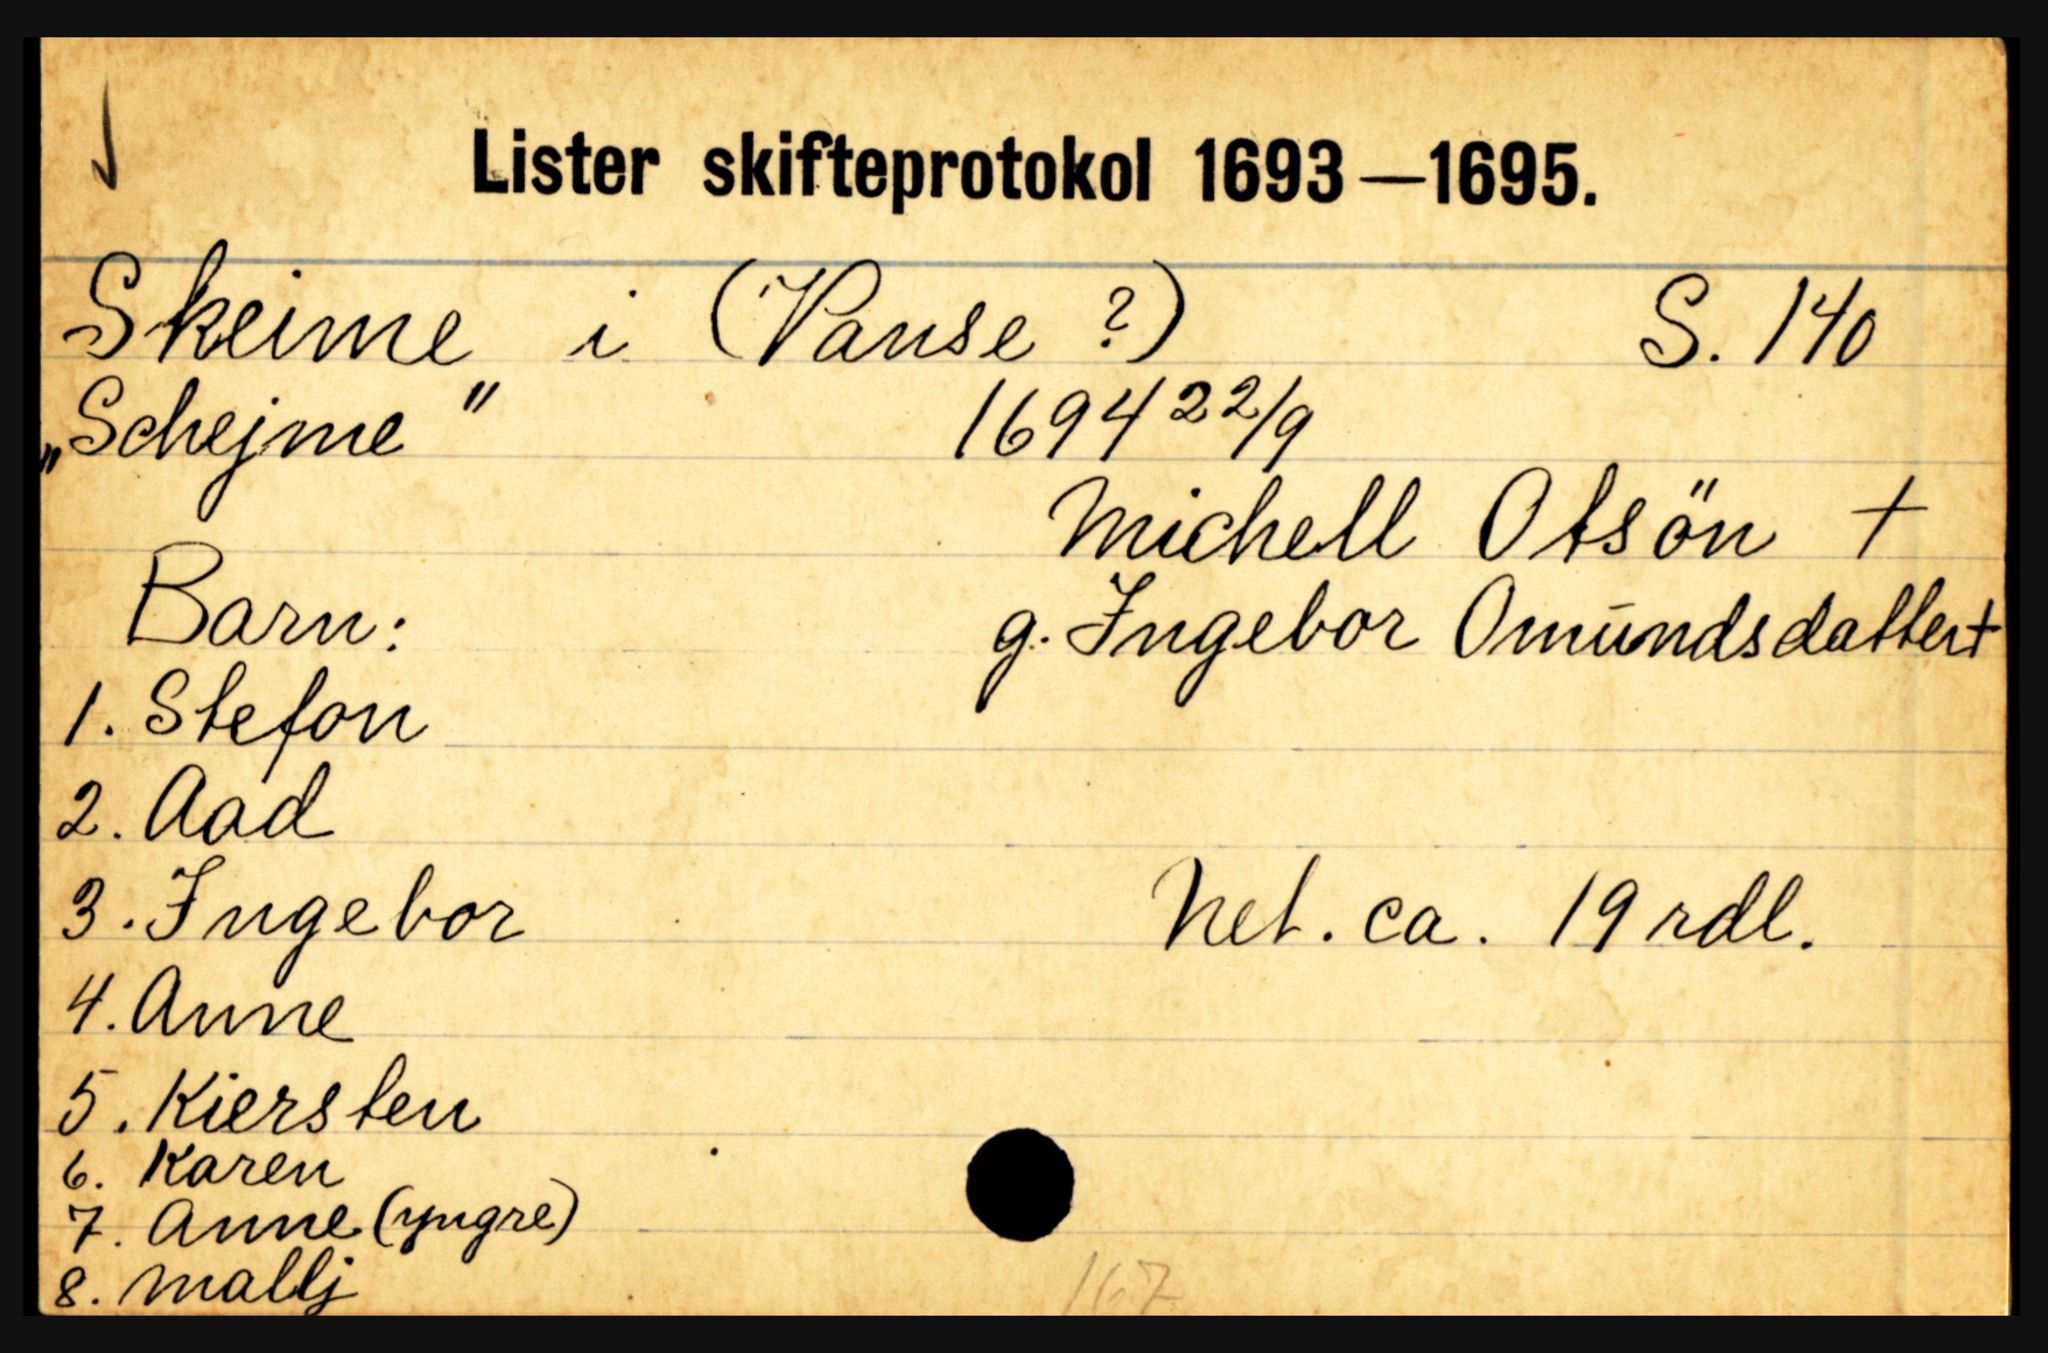 Lister skifteprotokol 1693—1695.
Skeime i (Vanse ?) S. 140
„Schejme" 1694 22/9
Michell Otsön +
Barn: g. Ingebor Omundsdatter +
1. Stefon
2. Aad
3. Ingebor Net. ca. 19 rdl.
4. Anne
5. Kiersten
6. Karen
7. Anne (yngre)
8. Mallj
167